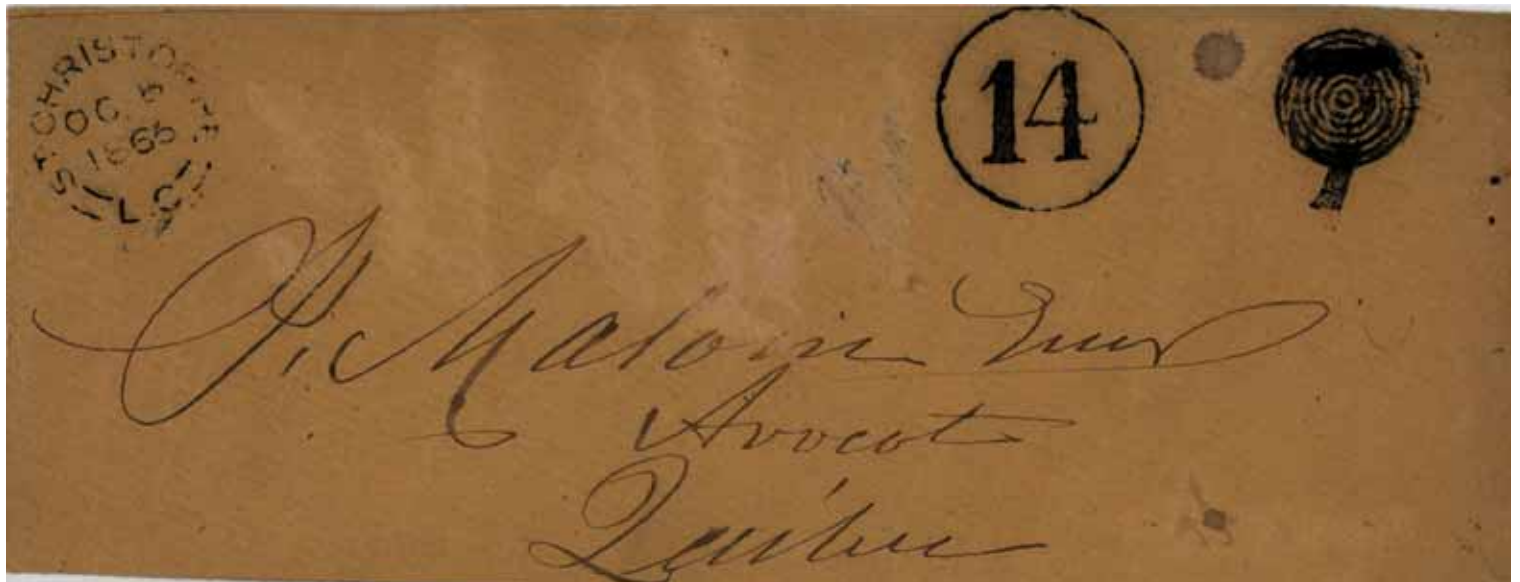 ST CHRISTOPHE
OC 5
1865
L.C.
14
P. Malouin
Avocat
Québec